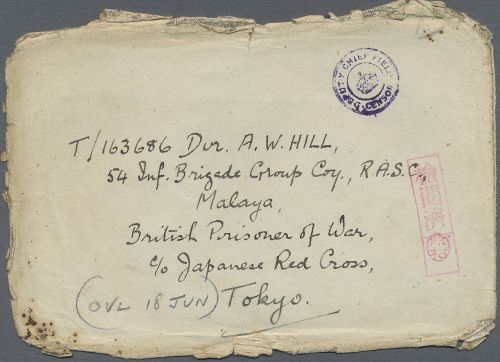 DEPUTY CHIEF FIELD CENSOR
T/163686 Dvr. A.W. HILL,
54 Inf. Brigade Group Coy., R.A.S.C,
Malaya,
British Prisoner of War,
c/o Japanese Red Cross,
(OVL 18 JUN) Tokyo.
檢閲濟